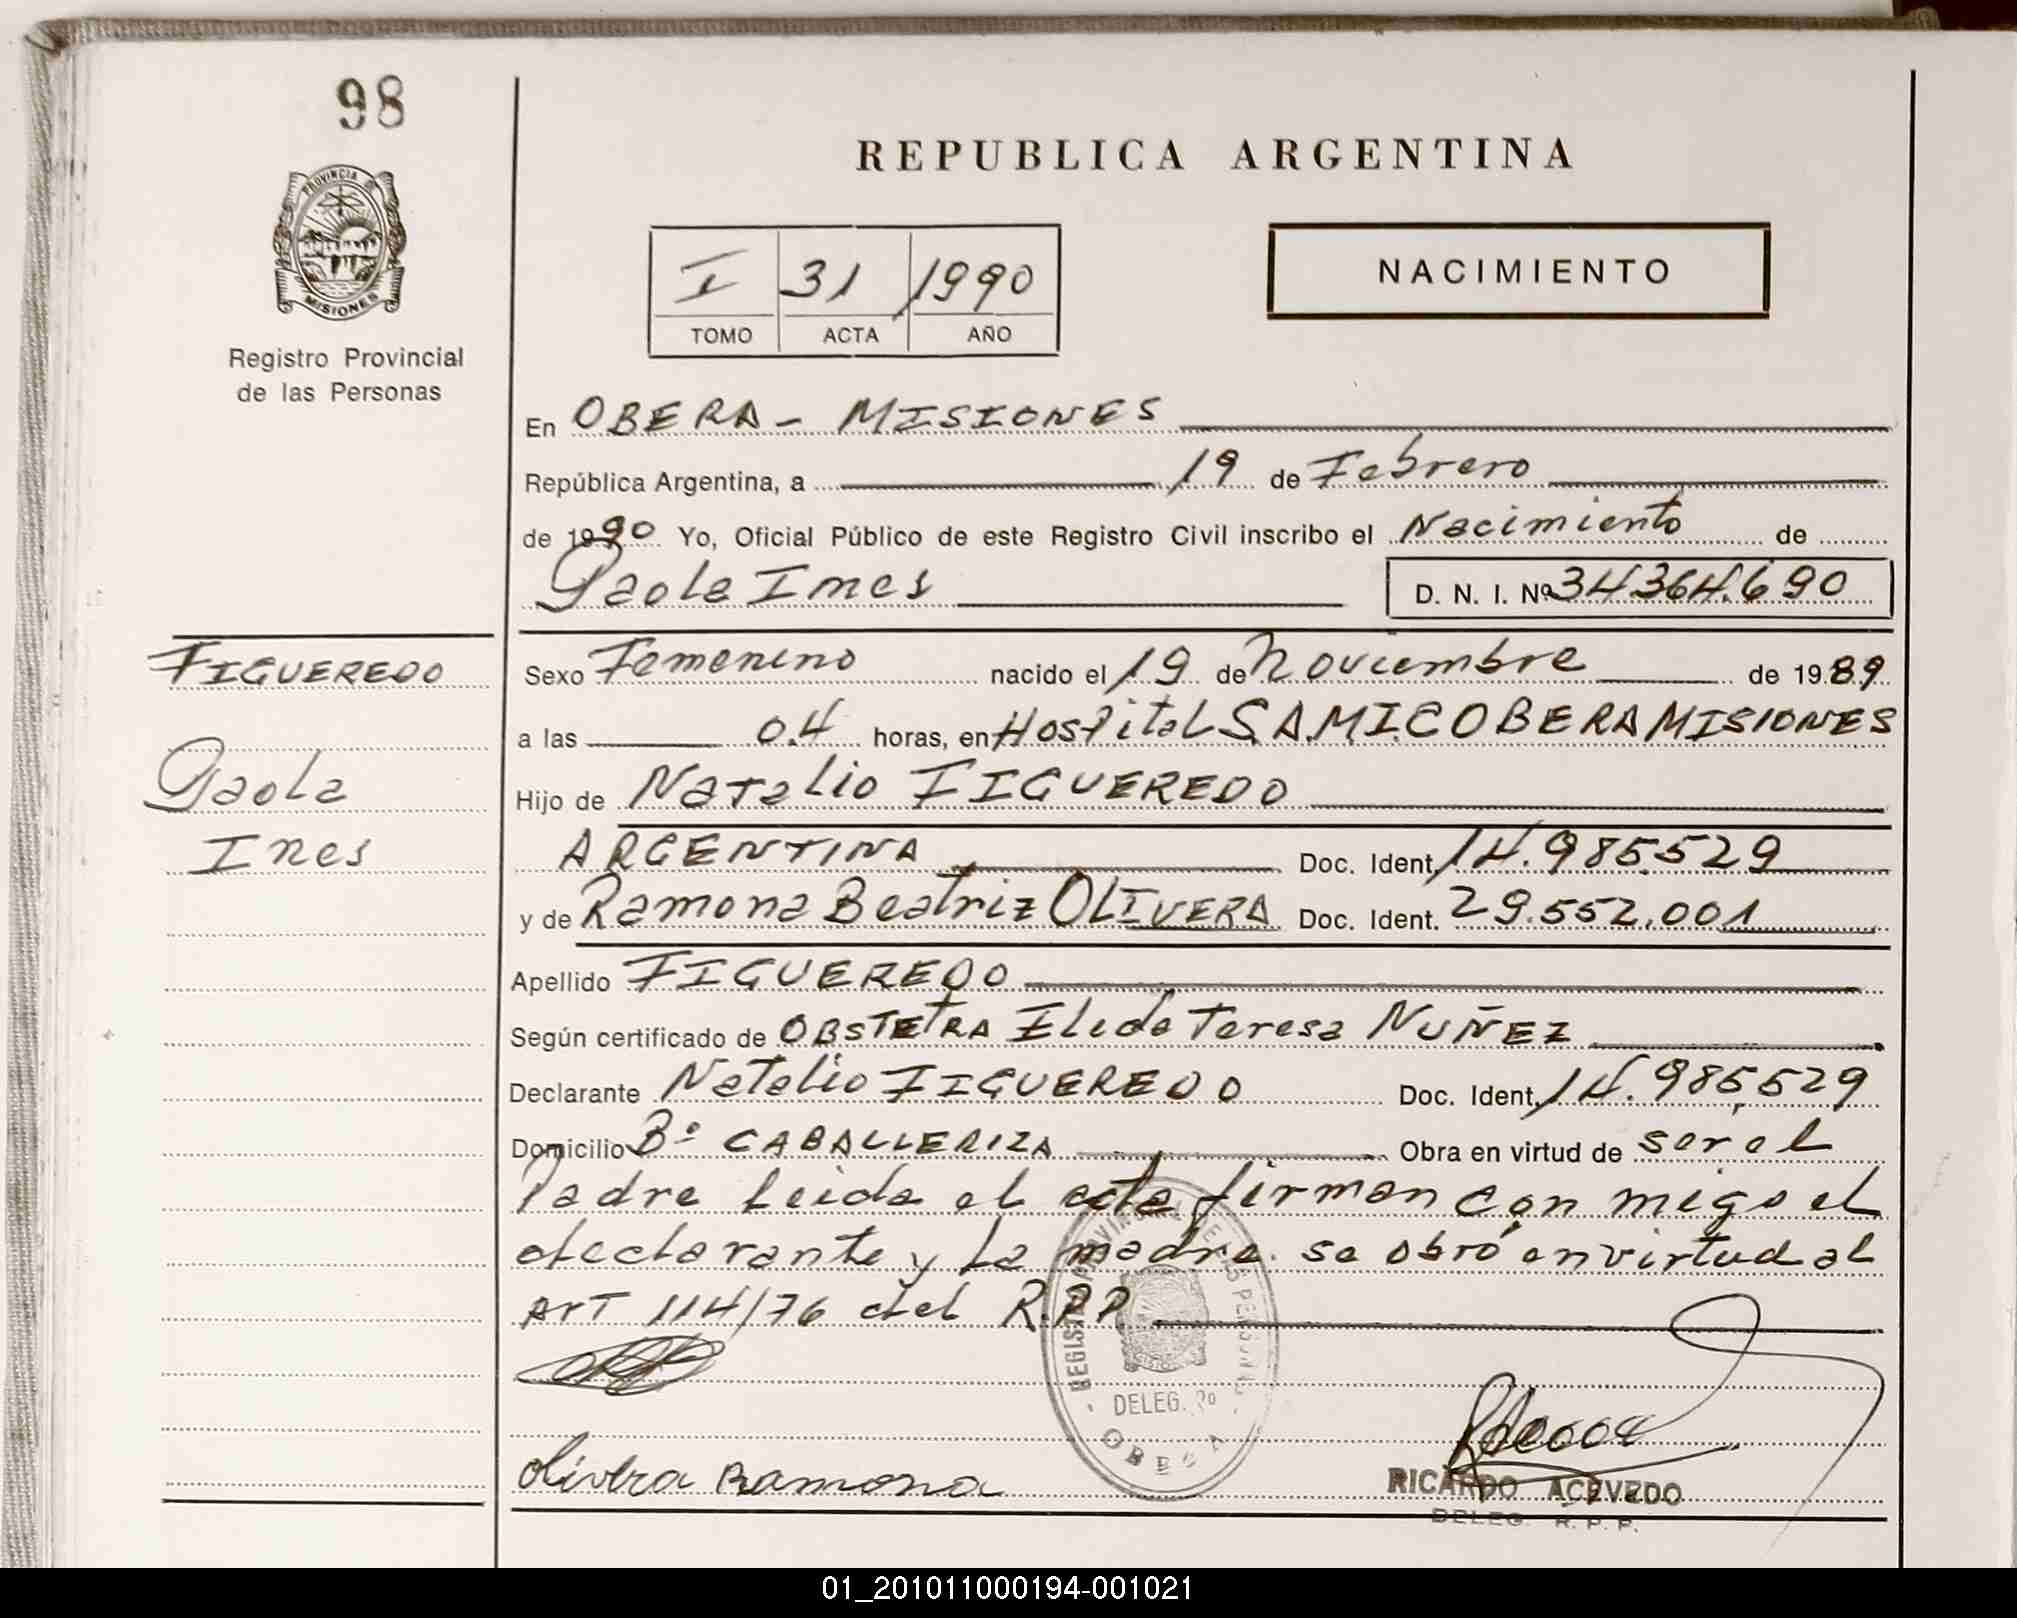 98
PROVINCIA DE
MISIONES
Registro Provincial
de las Personas
REPUBLICA ARGENTINA
I 31 1990
TOMO ACTA AÑO
NACIMIENTO
En OBERA - MISIONES
República Argentina, a 19 de Febrero
de 1990 Yo, Oficial Público de este Registro Civil inscribo el Nacimiento de
Paola Ines D. N. I. Nº 34364.690
FIGUEREDO
Paola
Ines
Sexo Femenino nacido el 19 de Noviembre de 1989
a las 04 horas, en Hospital S.A.M.I.C OBERA MISIONES
Hijo de Natalio FIGUEREDO
ARGENTINA Doc. Ident. 14.985.529
y de Ramona Beatriz OLIVERA Doc. Ident. 29.552.001
Apellido FIGUEREDO
Según certificado de OBSTETRA Elida Teresa NUÑEZ
Declarante Natalio FIGUEREDO Doc. Ident. 14.985.529
Domicilio Bº CABALLERIZA Obra en virtud de ser el
Padre Leida el acta firman con migo el
declarante y La madre. se obró en virtud al
ArT 114/76 del R.P.P.
DELEG.
OBERA
Olivera Ramona
RICARDO ACEVEDO
DELEG. R. P. P.
01_201011000194-001021